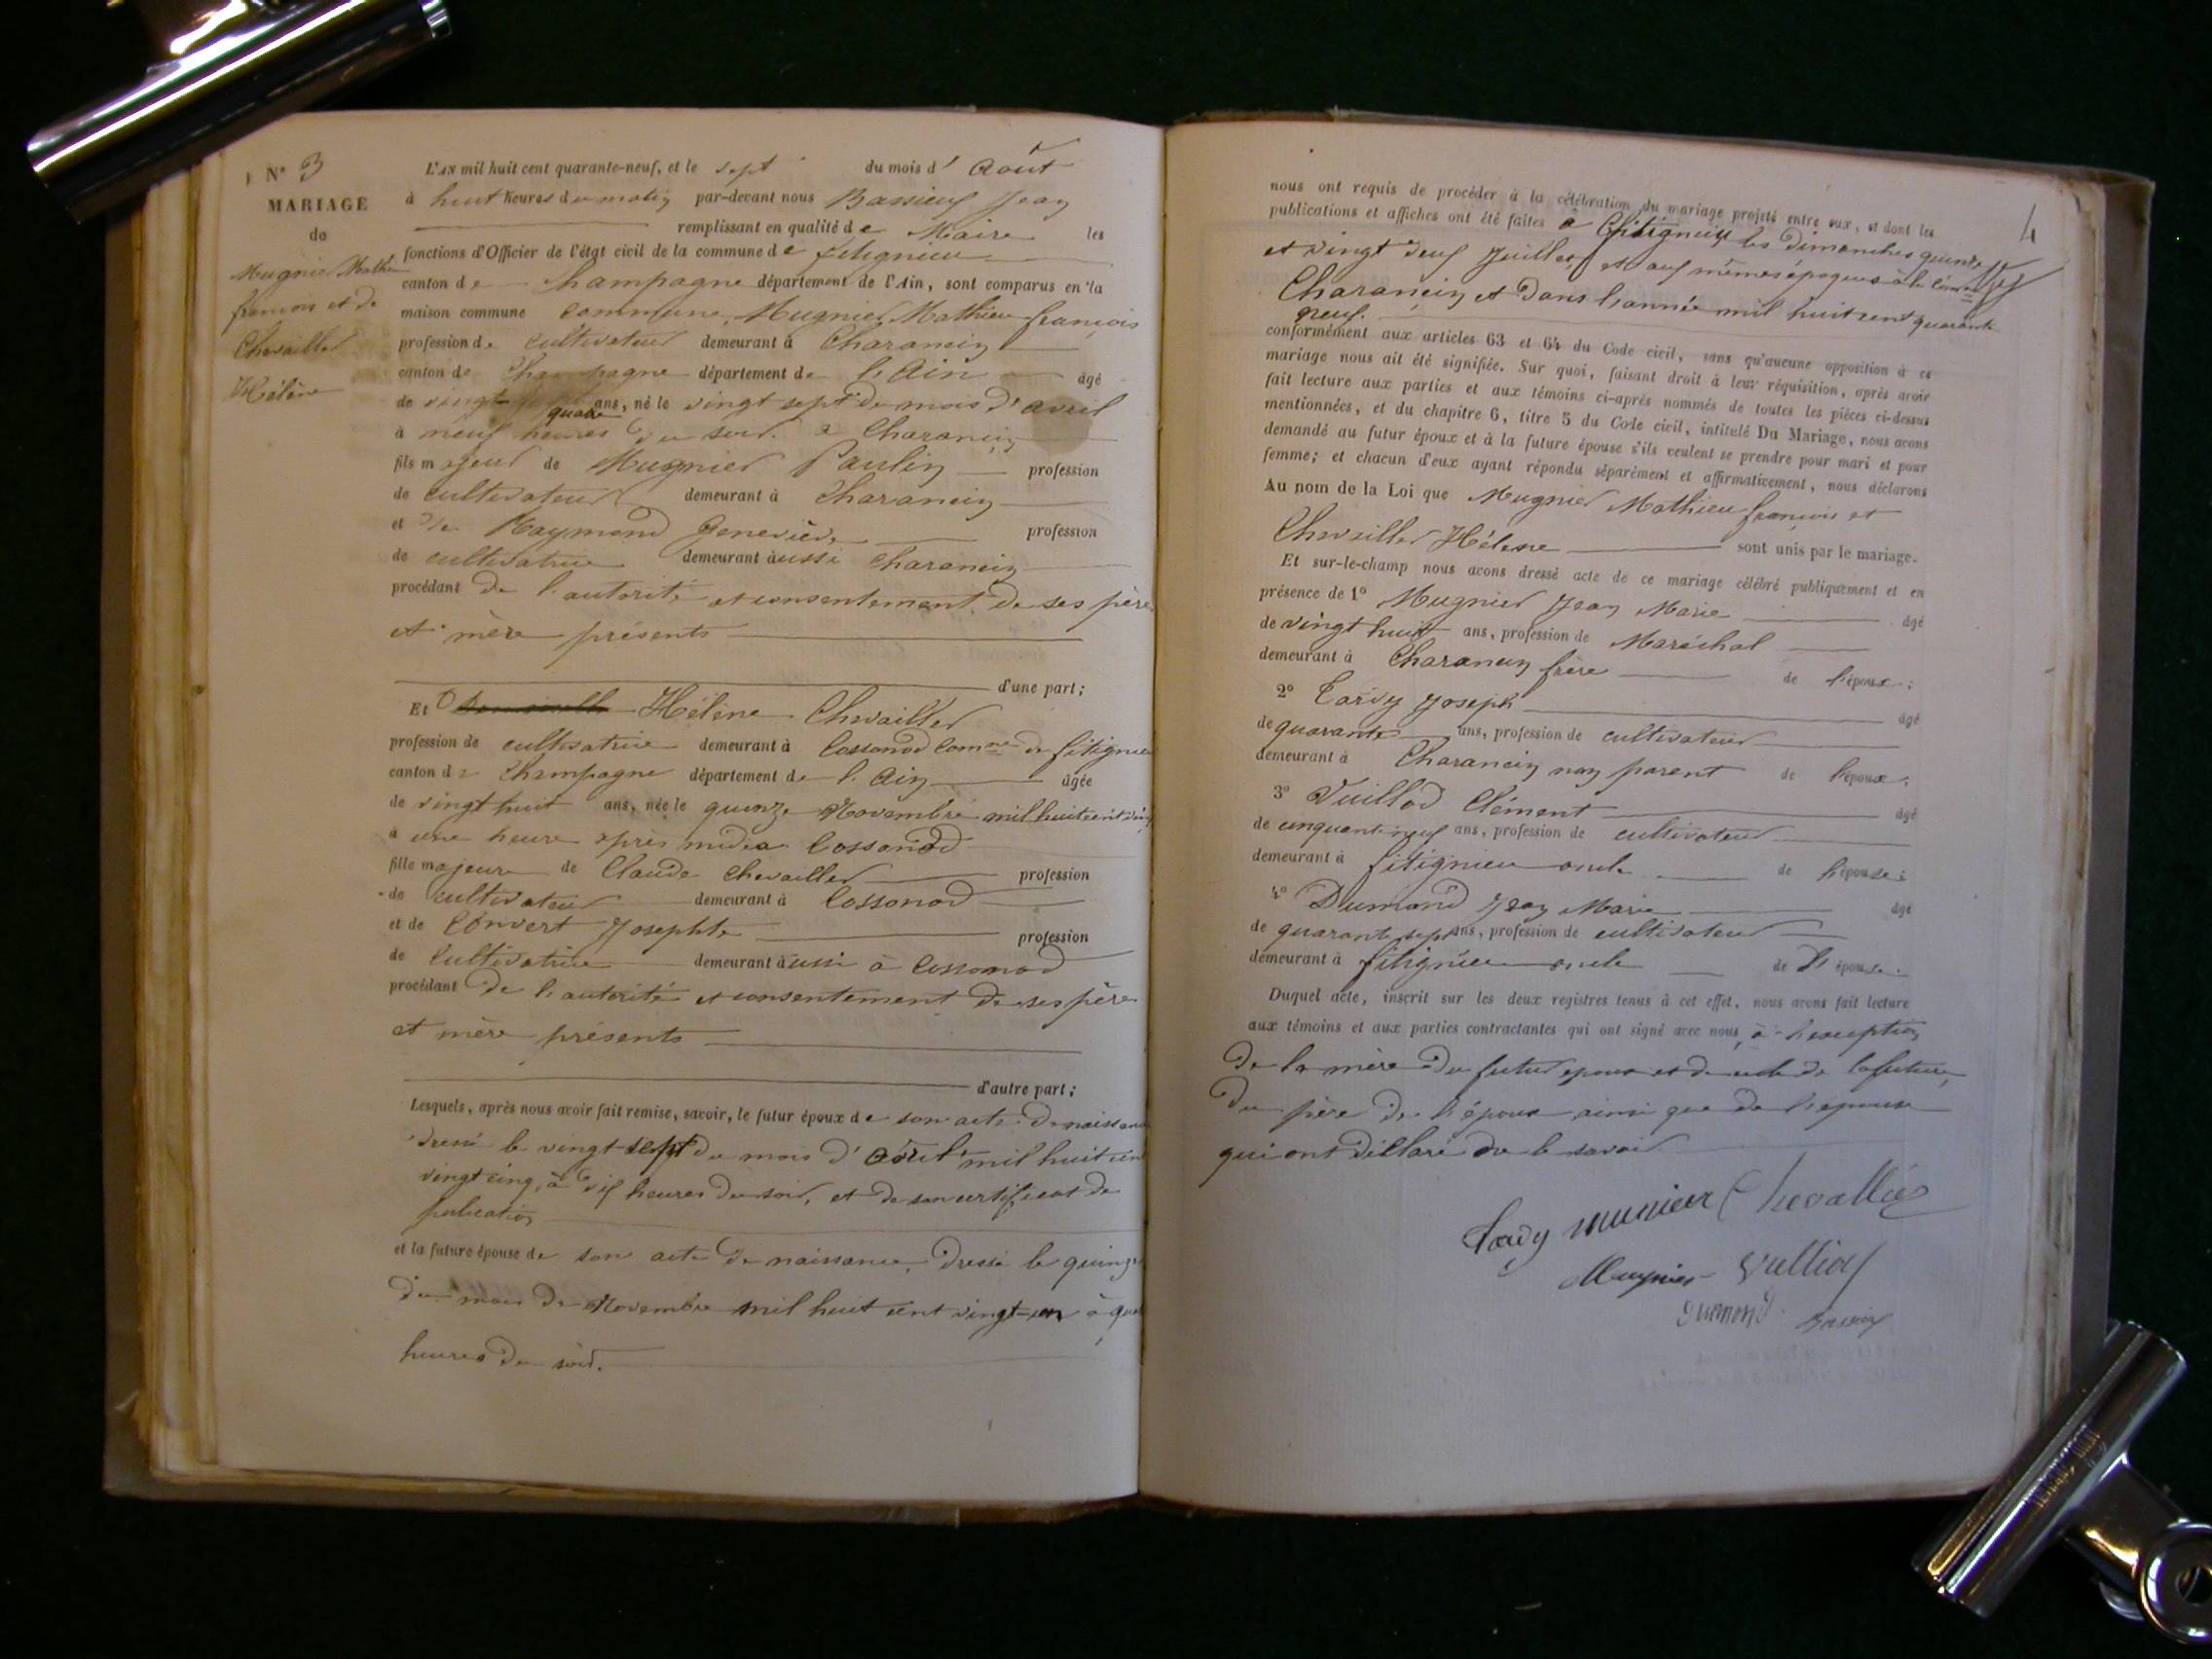 N° 3
MARIAGE
de
Mugnier Mathieu
françois et de
Chevailler
Hélène
L'AN mil huit cent quarante-neuf, et le sept du mois d'Août
à huit heures du matin par-devant nous Bassieux Jean
remplissant en qualité de Maire les
fonctions d'Officier de l'état civil de la commune de fitignieu
canton de Champagne département de l'Ain, sont comparus en la
maison commune commune, Mugnier Mathieu françois
profession de cultivateur demeurant à Charancin
canton de Champagne département de l'Ain âgé
de vingt quatre ans, né le vingt sept du mois d'avril
à neuf heures du soir à Charancin
fils majeur de Mugnier Paulin profession
de cultivateur demeurant à Charancin
et de Raymond Geneviève profession
de cultivatrice demeurant aussi Charancin
procédant de l'autorité et consentement de ses père
et mère présents
d'une part;
Et Hélène Chevailler
profession de cultivatrice demeurant à Cossonod Comne de fitignieu
canton de Champagne département de l'Ain âgée
de vingt huit ans, née le quinze Novembre mil huit cent
à une heure après midi à Cossonod
fille majeure de Claude Chevailler profession
de cultivateur demeurant à Cossonod
et de Convert Josephte profession
de Cultivatrice demeurant aussi à Cossonod
procédant de l'autorité et consentement de ses père
et mère présents
d'autre part;
Lesquels, après nous avoir fait remise, savoir, le futur époux de son acte de naissance
dressé le vingt-sept du mois d'avril mil huit cent
vingt cinq, à dix heures du soir, et de son certificat de
publication
et la future épouse de son acte de naissance, dressé le quinze
du mois de Novembre mil huit cent vingt-un à
heures du soir.
4
nous ont requis de procéder à la célébration du mariage projeté entre eux, et dont les
publications et affiches ont été faites à fitignieu les Dimanches quinze
et vingt deux Juillet, et aux mêmes époques à la
Charancin et dans l'année mil huit cent quarante
neuf.
conformément aux articles 63 et 64 du Code civil, sans qu'aucune opposition à ce
mariage nous ait été signifiée. Sur quoi, faisant droit à leur réquisition, après avoir
fait lecture aux parties et aux témoins ci-après nommés de toutes les pièces ci-dessus
mentionnées, et du chapitre 6, titre 5 du Code civil, intitulé Du Mariage, nous avons
demandé au futur époux et à la future épouse s'ils veulent se prendre pour mari et pour
femme; et chacun d'eux ayant répondu séparément et affirmativement, nous déclarons
Au nom de la Loi que Mugnier Mathieu françois et
Chevailler Hélène sont unis par le mariage.
Et sur-le-champ nous avons dressé acte de ce mariage célébré publiquement et en
présence de 1° Mugnier Jean Marie âgé
de vingt huit ans, profession de Maréchal
demeurant à Charancin frère de l'époux;
2° Tardy Joseph âgé
de quarante ans, profession de cultivateur
demeurant à Charancin non parent de l'époux;
3° Vuillod Clément âgé
de cinquante neuf ans, profession de cultivateur
demeurant à fitignieu oncle de l'épouse;
4° Dumond Jean Marie âgé
de quarante sept ans, profession de cultivateur
demeurant à fitignieu oncle de l'épouse.
Duquel acte, inscrit sur les deux registres tenus à cet effet, nous avons fait lecture
aux témoins et aux parties contractantes qui ont signé avec nous, à l'exception
de la mère du futur époux et de celle de la future,
du père de l'époux ainsi que de l'épouse
qui ont déclaré ne le savoir
Tardy munier Chevallier
Mugnier Vulliod
Dumond Bassieux